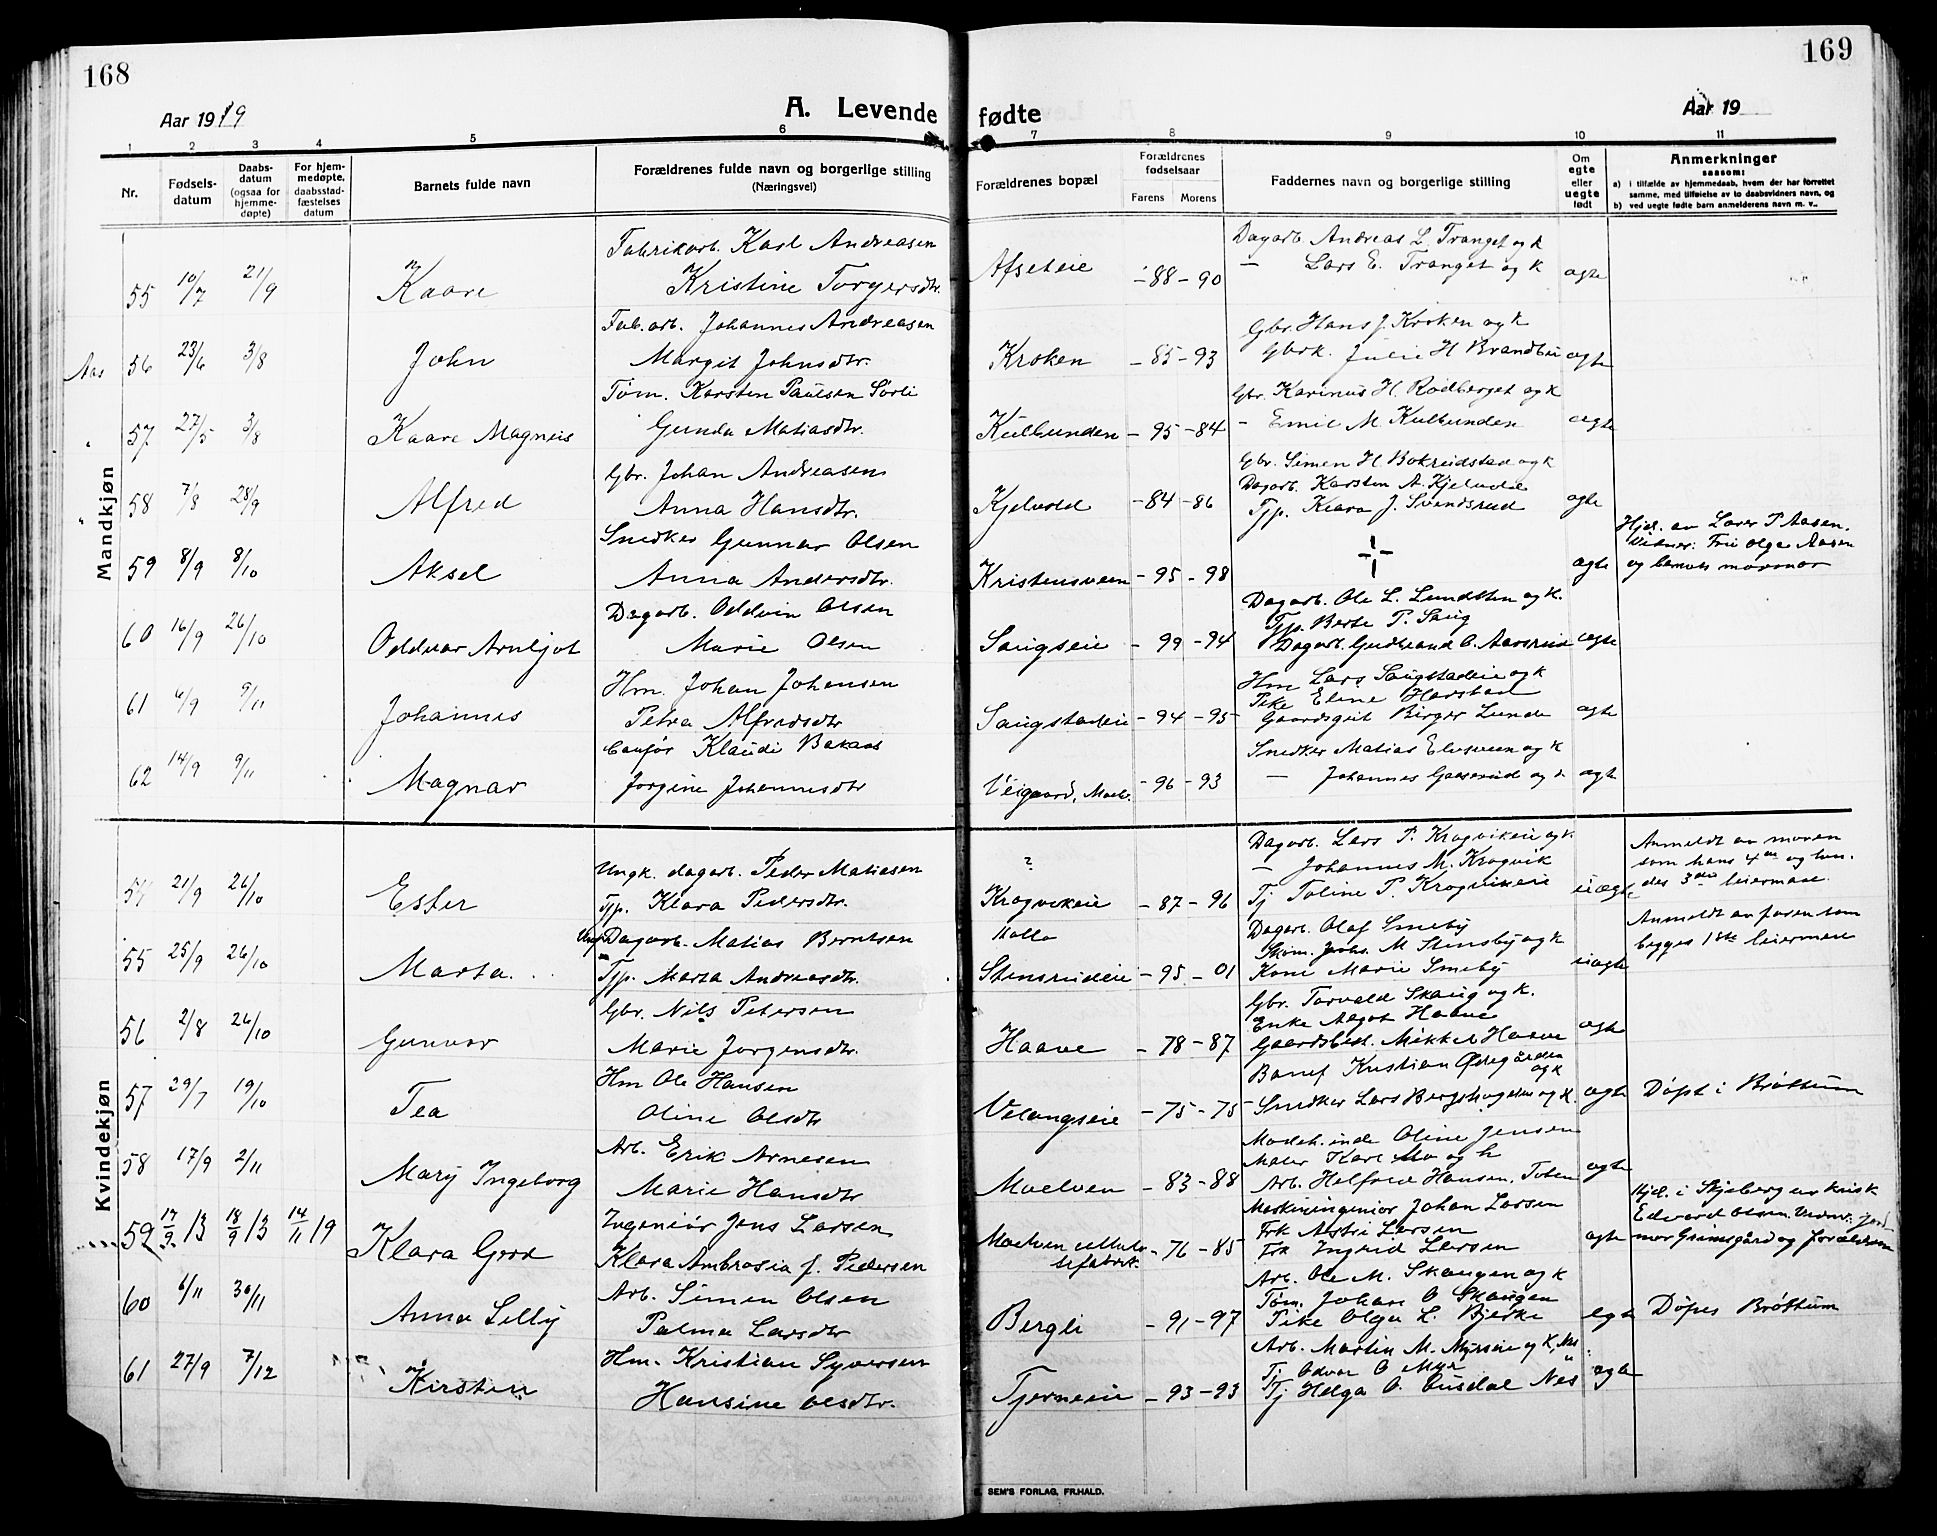 168
169
Aar 1919
A. Levende fødte
Aar 19
1 2 3 4 5 6 7 8 9 10 11
Nr.
Fødsels-
datum
Daabs-
datum
(ogsaa for
hjemme-
døpte)
For hjem-
medøpte,
daabsstad-
fæstelses
datum
Barnets fulde navn
Forældrenes fulde navn og borgerlige stilling
(Næringsvei)
Forældrenes bopæl
Forældrenes
fødselsaar
Farens Morens
Faddernes navn og borgerlige stilling
Om
egte
eller
uegte
født
Anmerkninger
saasom:
a) i tilfælde av hjemmedaab, hvem der har forrettet
samme, med tilføielse av to daabsvidners navn, og
b) ved uegte fødte barn anmelderens navn m. v..
Mandkjøn
55 10/7 21/9 Kaare
Fabrikarb. Karl Andreasen
Kristine Torgersdtr.
Afseteie -88 - 90
Dagarb. Andreas L. Tranget og k
— Lars E. Tranget og k
ægte
Aas 56 23/6 3/8 John
Fab.arb. Johannes Andreasen
Margit Johnsdtr.
Kroken - 85 - 93
Gbr. Hans J. Kroken og k
Gbrk. Julie H Brandlien
ægte
" 57 27/5 3/8 Kaare Magnus
Tøm. Karsten Paulsen Sørli
Gunda Matiasdtr.
Kulbunden - 95 - 84
Gbr. Karinus H. Rødberget og k
- Emil M Kulbunden
ægte
" 58 7/8 28/9 Alfred
Gbr. Johan Andreasen
Anna Hansdtr.
Kjelvold - 84 - 86
Gbr. Simen H. Bakreidstad og k
Dagarb. Karsten A. Kjelvold
Tjp. Klara J. Svendsrud
ægte
59 8/9 8/10 Aksel
Snedker Gunnar Olsen
Anna Andersdtr.
Kristensveen - 95 - 98
ægte
Hjd. av Lærer P Aasen.
Vidner: Fru Olga Aasen
og barnets mormor
60 16/9 26/10 Oddvar Arnljot
Dagarb. Oddvin Olsen
Marie Olsen
Saugseie - 99 - 94
Dagarb. Ole L. Lundsten og k.
Tjp. Berte P. Saug
Dagarb. Gudbrand O. Aarsrud
ægte
61 6/9 9/11 Johannes
Hm. Johan Johansen
Petra Alfredsdtr
Saugstadeie - 94 - 95
Hm Lars Saugstadeie og k
Pike Eline Harstad
Gaardsgut Birger Lunde
ægte
62 14/9 9/11 Magnar
Caufør Klaudi Bakaas
Jørgine Johannesdtr
Veigaard, Moelv. - 96 - 93
Snedker Matias Elvsveen og k
— Johannes Gaaserud og k
ægte
Kvindekjøn
54 21/9 26/10 Ester
Ungk. dagarb. Peder Matiasen
Tjp. Klara Pedersdtr.
?
Krogvikeie - 87 - 96
Dagarb. Lars P. Krogvikeie og k.
— Johannes M. Krogvik
Tj Toline P. Krogvikeie
uægte
Anmeldt av moren
som hans 4de og hen-
des 3die leiermaal.
55 25/9 26/10 Marta
Ungk Dagarb. Matias Berntsen
Tjp. Marta Andreasdtr.
Holla
Stensrudeie - 95 - 01
Dagarb. Olaf Smeby
Skom. Johs. M Stensby og k
Kone Marie Smeby
uægte
Anmeldt av faren som
begges 1ste leiermaal
56 2/8 26/10 Gunvor
Gbr. Nils Petersen
Marie Jørgensdtr.
Haave - 78 - 87
Gbr. Torvald Skaug og k.
Enke Aagot Haave
Gaardsbest. Mikkel Haave
ægte
57 29/7 19/10 Tea
Hm Ole Hansen
Oline Olsdtr
Velangseie - 75 - 75
Banef Kristian Øvregården
og k
Snedker Lars Bergshagelen og k.
ægte Døpt i Brøttum
58 17/9 2/11 Mary Ingeborg
Arb. Erik Arnesen
Marie Hansdtr
Moelven - 83 - 88
Modeh.inde Oline Jensen
Maler Karl Mo og k
Arb. Helfred Hansen, Toten
ægte
59 17/9 13 18/9 13 14/11 19 Klara Gerd
Ingeniør Jens Larsen
Klara Ambrosia f. Pedersen
Moelven cellulo-
sefabrik. - 76 - 85
Maskiningeniør Johan Larsen
Frk Astri Larsen
Frk Ingrid Larsen
ægte
Hjd. i Skjeberg av krisk
Edvard Olsen. Vidner: jord
mor Grimsgård og forældrene
60 6/11 30/11 Anna Lilly
Arb. Simen Olsen
Palma Larsdtr
Bergli - 91 - 97
Arb. Ole M. Skaugen og k
Tøm. Johan O Skaugen
Pike Olga L. Bjerke
ægte Døpes Brøttum
61 27/9 7/12 Kirsten
Hm. Kristian Syversen
Hansine Olsdtr.
Tjerneie - 93 - 93
Arb. Martin M. Myrseie og k, Nes
Tj Odvar O Myr "
Tj Helga O. Ousdal Nes
ægte
SEM'S FORLAG, FR.HALD.